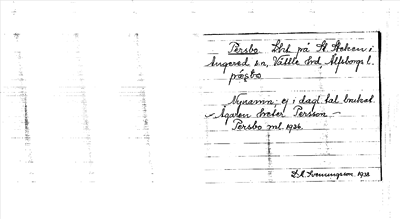 Persbo. Lht på St. Steken i
Angered sn, Vättle hd, Älfsborgs l.
pæ̀ʂbo
Nynamn; ej i dagl. tal brukat.
- Ägaren heter Persson. -
Persbo ml. 1936.
D.A. Svenungsson 1938